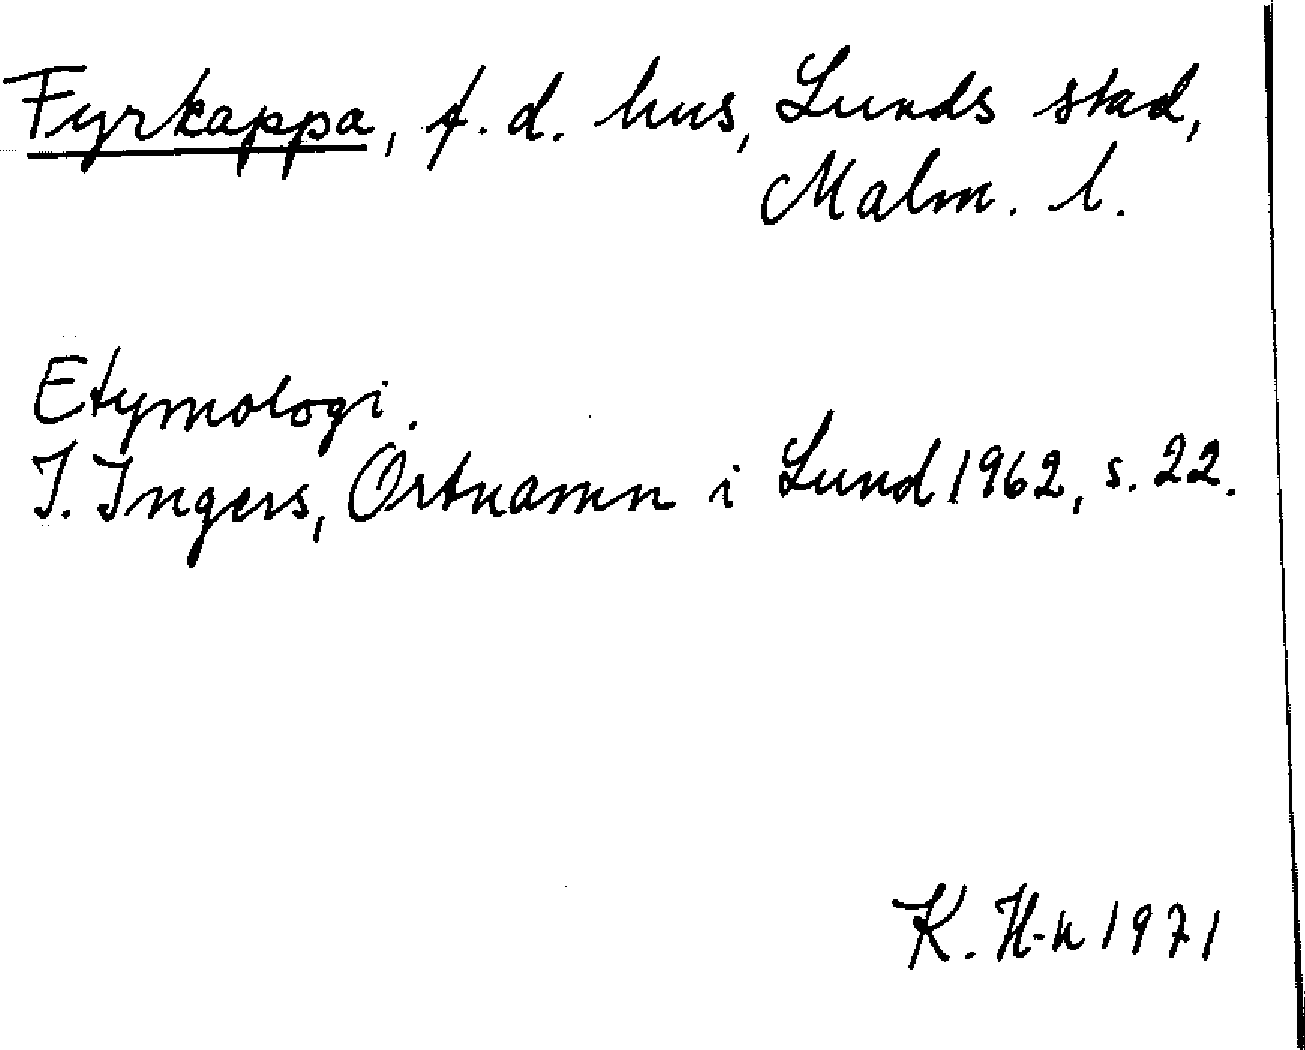 Fyrkappa, f.d. hus, Lunds stad,
Malm. l.
Etymologi.
I. Ingers, Ortnamn i Lund 1962, s. 22.
K. H-n 1971